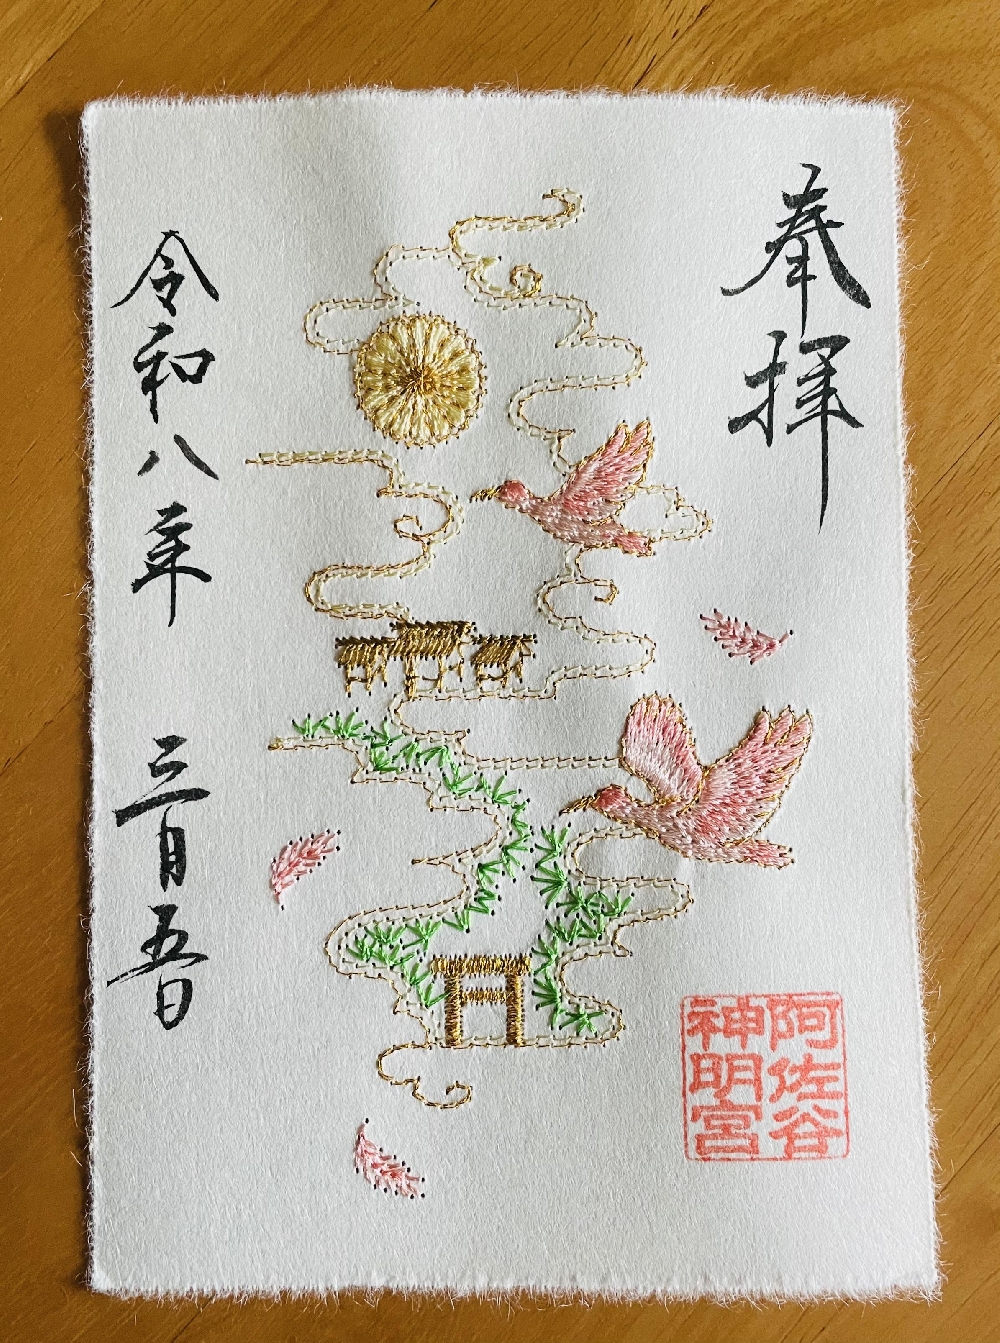 奉拝
令和八年 三月五日
阿佐谷
神明宮